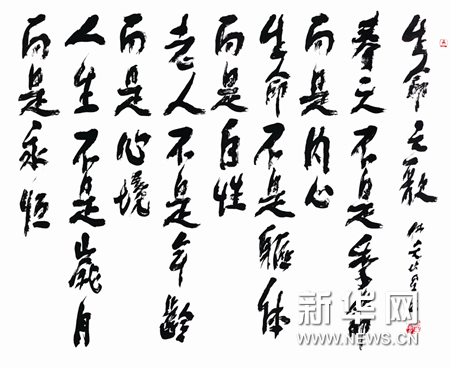 生命之歌
春天不是季節
而是内心
生命不是軀体
而是自性
老人不是年齡
而是心境
人生不是歲月
而是永恒
新华网
WWW.NEWS.CN